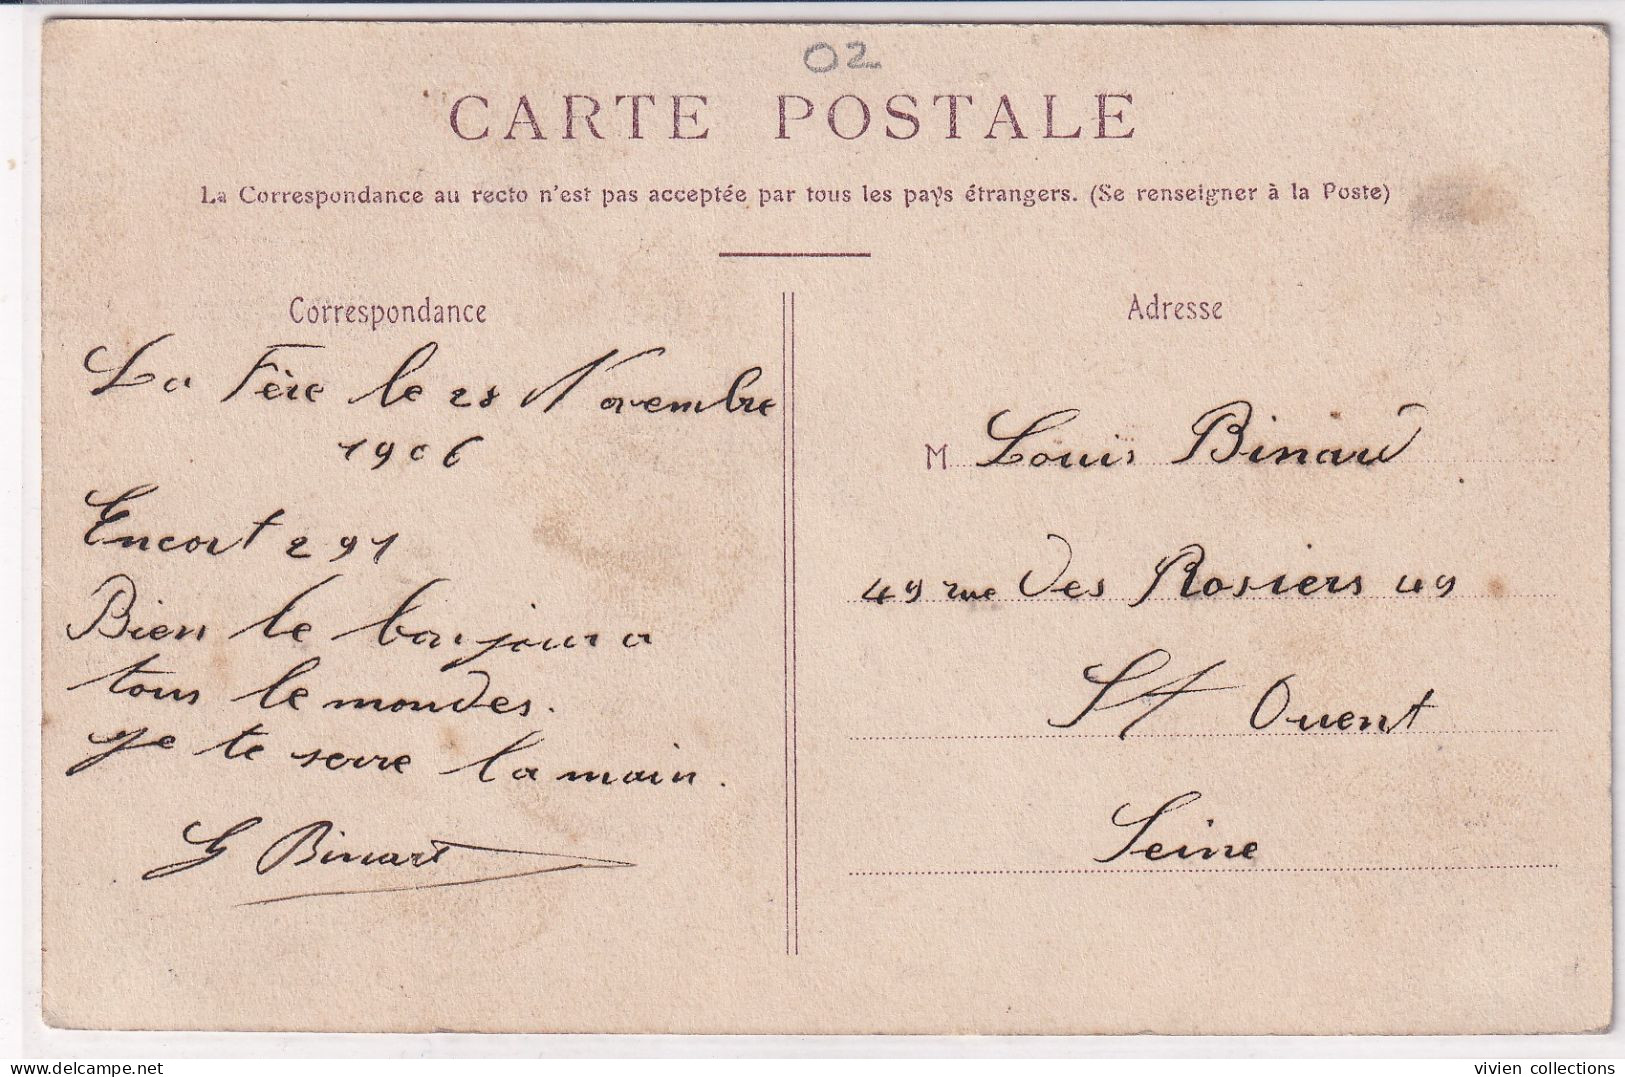 02
CARTE POSTALE
La Correspondance au recto n'est pas acceptée par tous les pays étrangers. (Se renseigner à la Poste)
Correspondance
La Fère le 28 Novembre
1906
Encort 291
Bien le bonjour a
tous le mondes.
Je te serre la main.
G Binart
Adresse
M Louis Binart
49 rue des Rosiers 49
St Ouent
Seine
delcampe.net
vivien collections